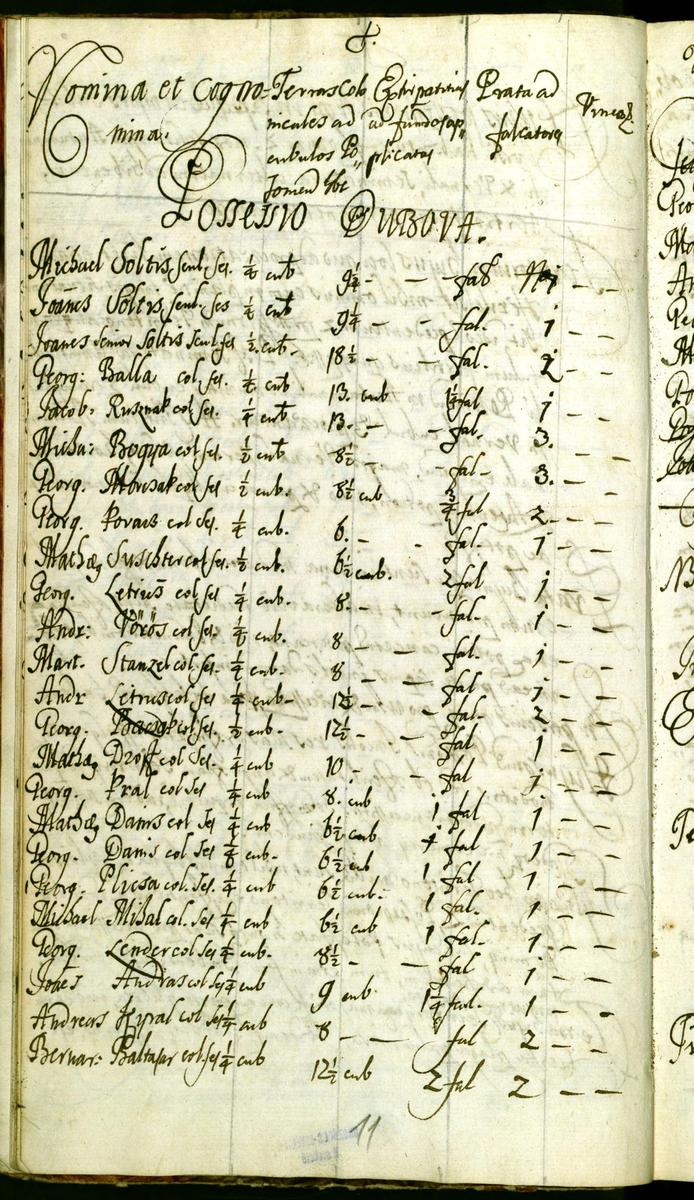 Nomina et Cogno= Terras Colo Extirpatitias Prata ad Vineas
mina. nicales ad ad fundos ap" falcatores
cubulos Po" plicatas
Possessio Dubova.
Michael Soltis scul. ses. 1/4 cub 9 1/4 - - fal
Joanes Soltis scul. ses 1/4 cub 9 1/4 - - fal. 1 - -
Joanes Senior Soltis scul ses 1/2 cub - 18 1/2 - - fal. 2 - -
Georg: Balla col. ses. cub 13. cub 1 1/4 fal 1 - -
Jacob: Rusznak col ses. 1/4 cub 13. - - fal. 3. - -
Micha: col ses. 1/2 cub 8 1/2 - - fal - 3. - -
Georg. col ses 1/2 cub. 8 1/2 cub 3/4 fal 2 - -
Georg. Kovacs col ses. 1/4 cub. 6. - - fal. 1 - -
Mathæ Suschter col ses. 1/2 cub. 6 1/2 cub. 2 fal 1 - -
Georg. Letrus col ses 1/4 cub. 8. - - fal. 1 - -
Andr: Vörös col ses. 1/4 cub. 8 - - fal. 1 - -
Mart. Stanzel col ses. 1/4 cub. 8 - - fal 1 - -
Andr Letrus col ses 1/4 cub - 12 1/2 - - fal. 2 - -
Georg. col ses. 1/2 cub - 12 1/2 - - fal 1 - -
Mathæ col Ses. 1/4 cub 10 - - fal 1 - -
Georg. Kral col ses 1/4 cub 8. cub 1 fal 1 - -
Mathæ Danis col ses 1/4 cub 6 1/2 cub 1 fal 1 - -
Georg. Danis col ses cub - 6 1/2 cub 1 fal 1 - -
Georg. Plicsa col. Ses. 1/4 cub 6 1/2 cub - 1 fal. 1 - -
Michael Mihal col. ses 1/4 cub 6 1/2 cub 1 fal. 1 - -
Georg. Lender col ses 1/4 cub. 8 1/2 - - fal 1 - -
Joaēs Andras col ses 1/4 cub 9 cub 1 1/4 fal. 1 - -
Andreas Kyral col ses 1/4 cub 8 - - fal 2 - -
Bernar: Baltasar col ses 1/4 cub 12 1/2 cub 2 fal 2 - -
11